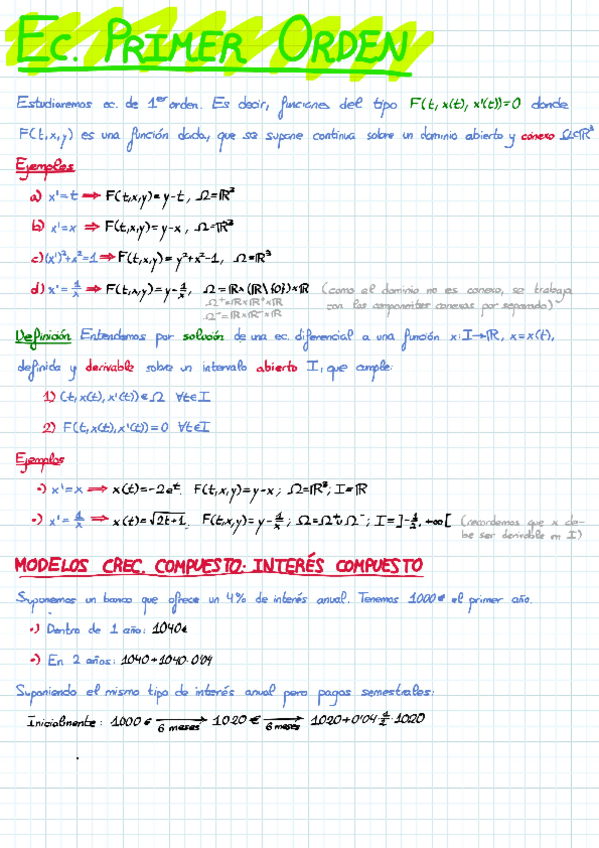 EC. PRIMER ORDEN
Estudiaremos ec. de 1er orden. Es decir, funciones del tipo F(t, x(t), x'(t))=0 donde
F(t,x,y) es una función dada, que se supone continua sobre un dominio abierto y conexo Ω⊂ℝ³
Ejemplos
a) x'=t ⟹ F(t,x,y)=y-t, Ω=ℝ³
b) x'=x ⟹ F(t,x,y)=y-x, Ω=ℝ³
c) (x')²+x²=1 ⟹ F(t,x,y)=y²+x²-1, Ω=ℝ³
d) x'=1/x ⟹ F(t,x,y)=y-1/x, Ω=ℝ×(ℝ\{0})×ℝ (como el dominio no es conexo, se trabaja
Ω⁺=ℝ×ℝ⁺×ℝ con las componentes conexas por separado)
Ω⁻=ℝ×ℝ⁻×ℝ
Definición Entendemos por solución de una ec. diferencial a una función x:I→ℝ, x=x(t),
definida y derivable sobre un intervalo abierto I, que cumple:
1) (t,x(t),x'(t))∈Ω ∀t∈I
2) F(t,x(t),x'(t))=0 ∀t∈I
Ejemplos
•) x'=x ⟹ x(t)=-2eᵗ. F(t,x,y)=y-x; Ω=ℝ³; I=ℝ
•) x'=1/x ⟹ x(t)=√(2t+1). F(t,x,y)=y-1/x; Ω=Ω⁺∪Ω⁻; I=]-1/2,+∞[ (recordemos que x de-
be ser derivable en I)
MODELOS CREC. COMPUESTO: INTERÉS COMPUESTO
Suponemos un banco que ofrece un 4% de interés anual. Tenemos 1000€ el primer año.
•) Dentro de 1 año: 1040€
•) En 2 años: 1040+1040·0'04
Suponiendo el mismo tipo de interés anual pero pagos semestrales:
Inicialmente: 1000 € → 1020 € → 1020+0'04·1/2·1020
6 meses 6 meses